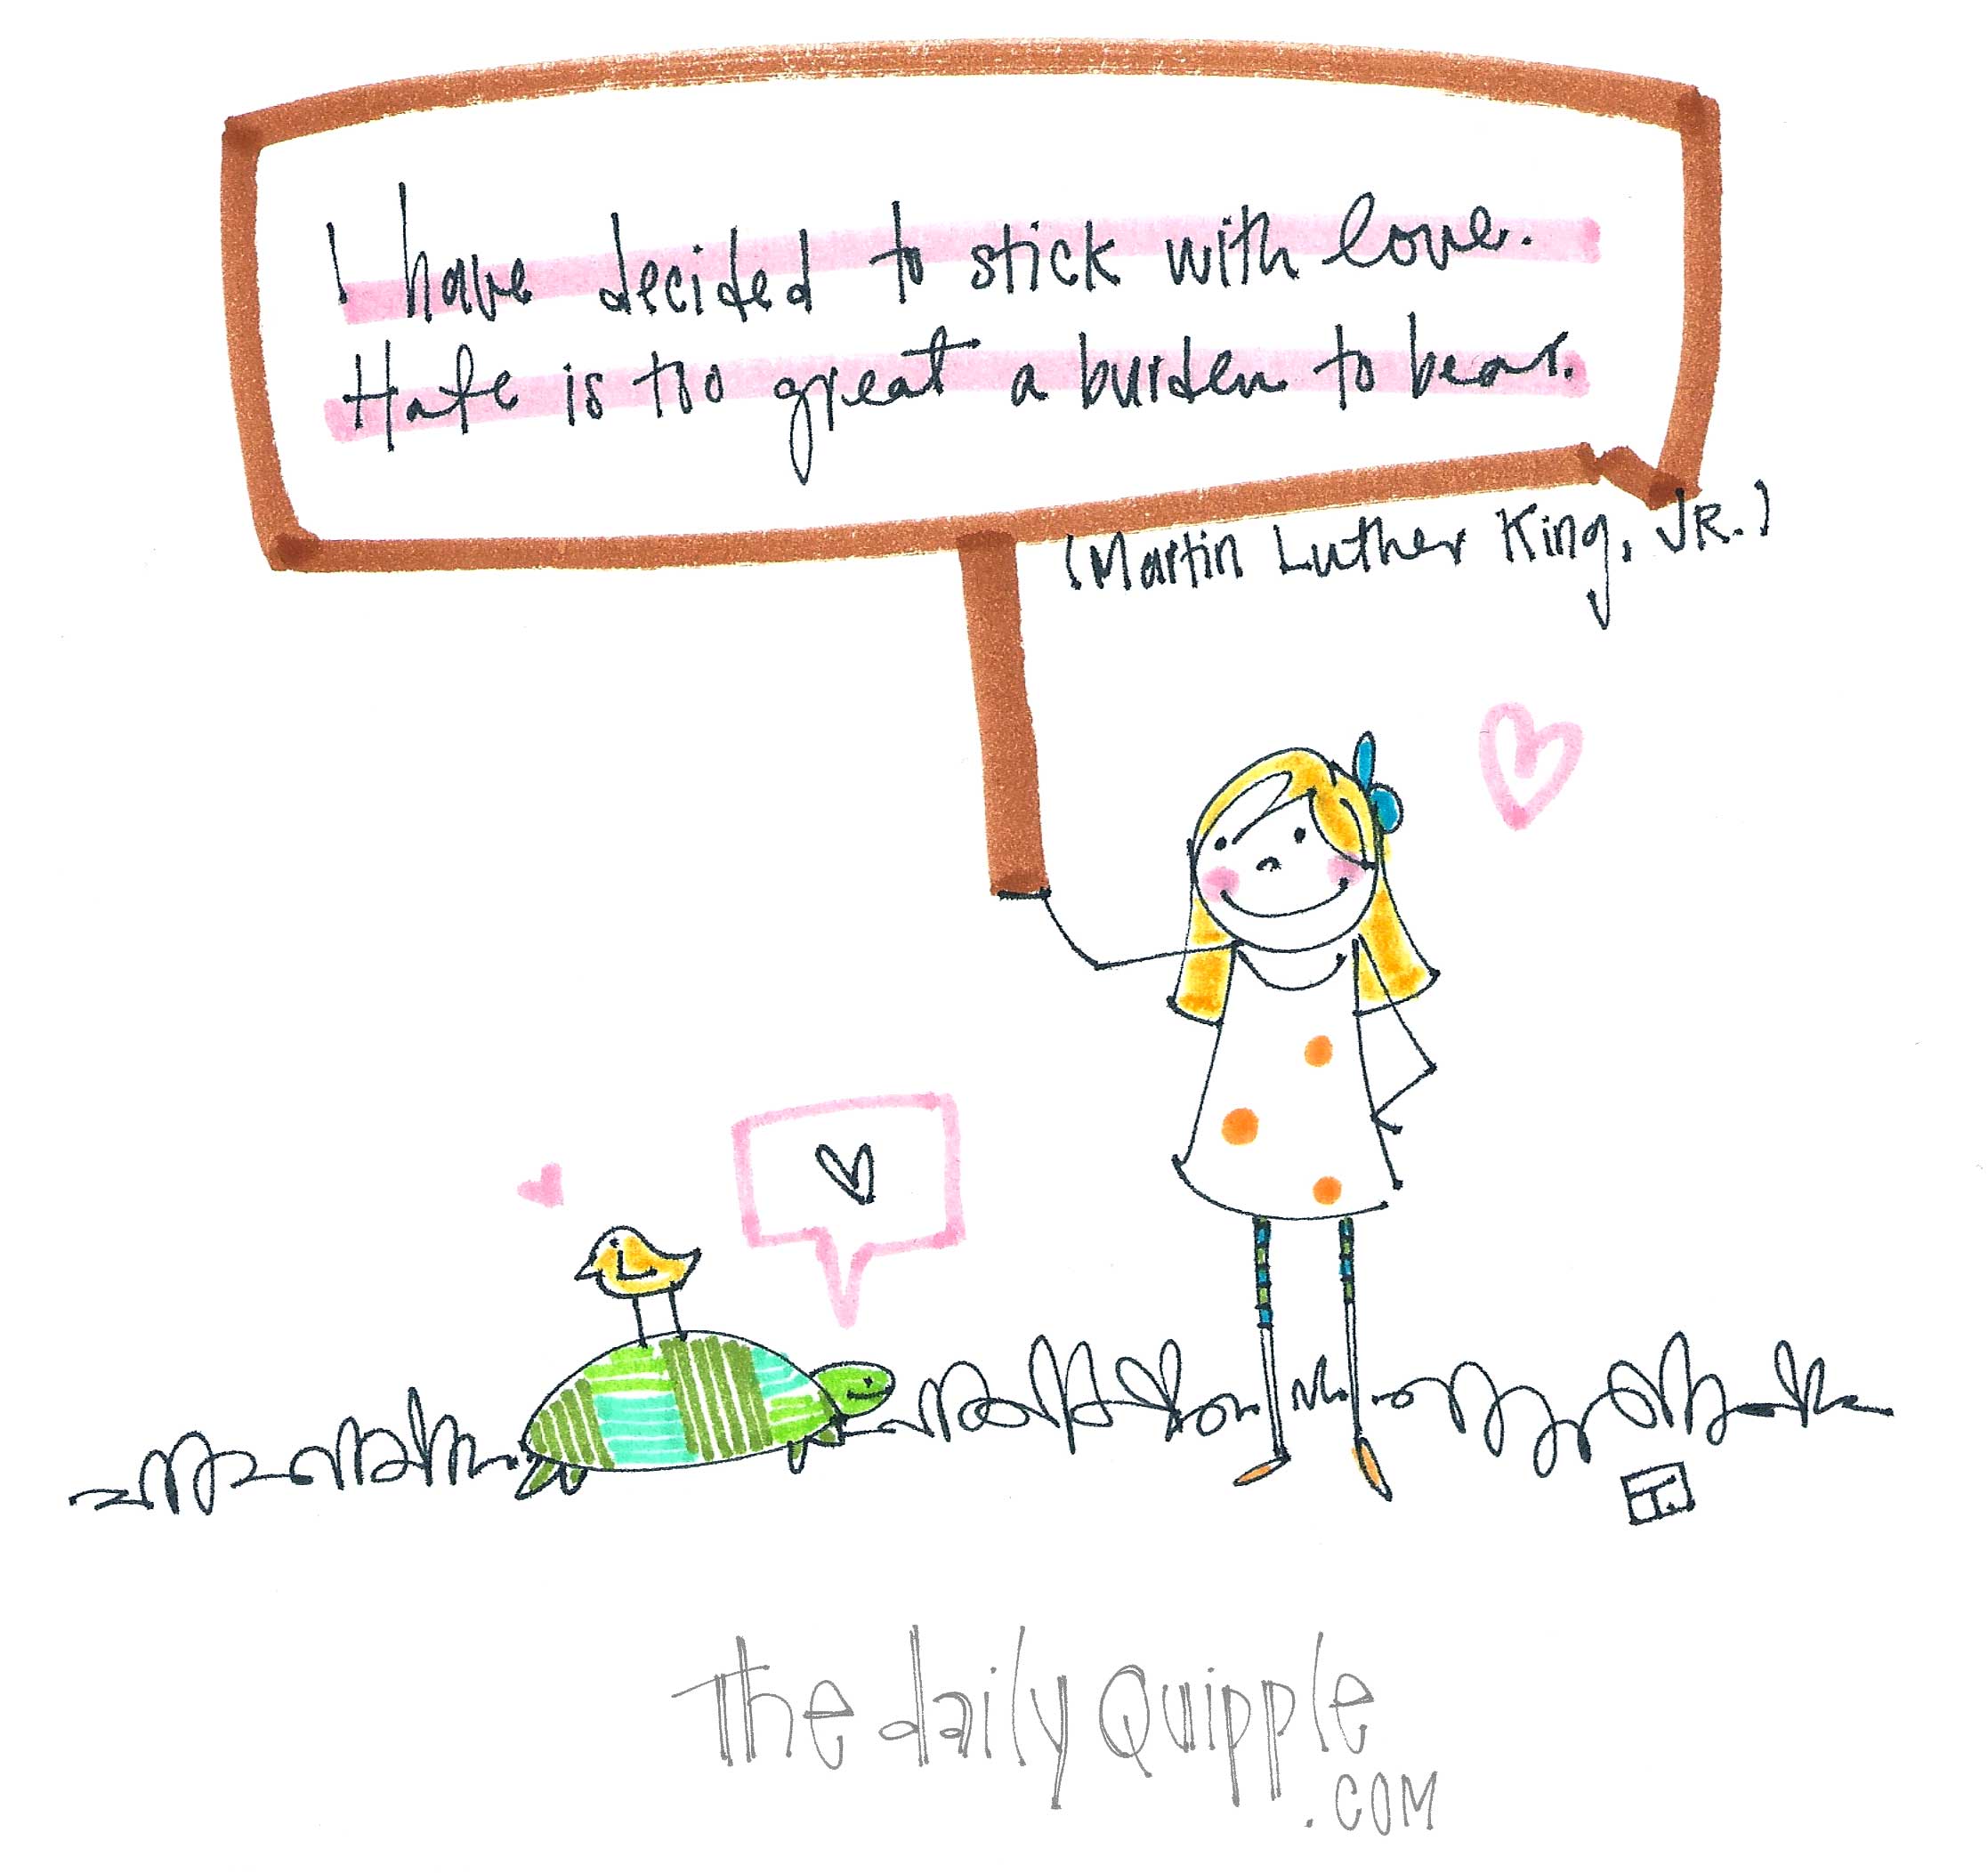 I have decided to stick with love.
Hate is too great a burden to bear.
(Martin Luther King, JR.)
T.
the daily Quipple
.com